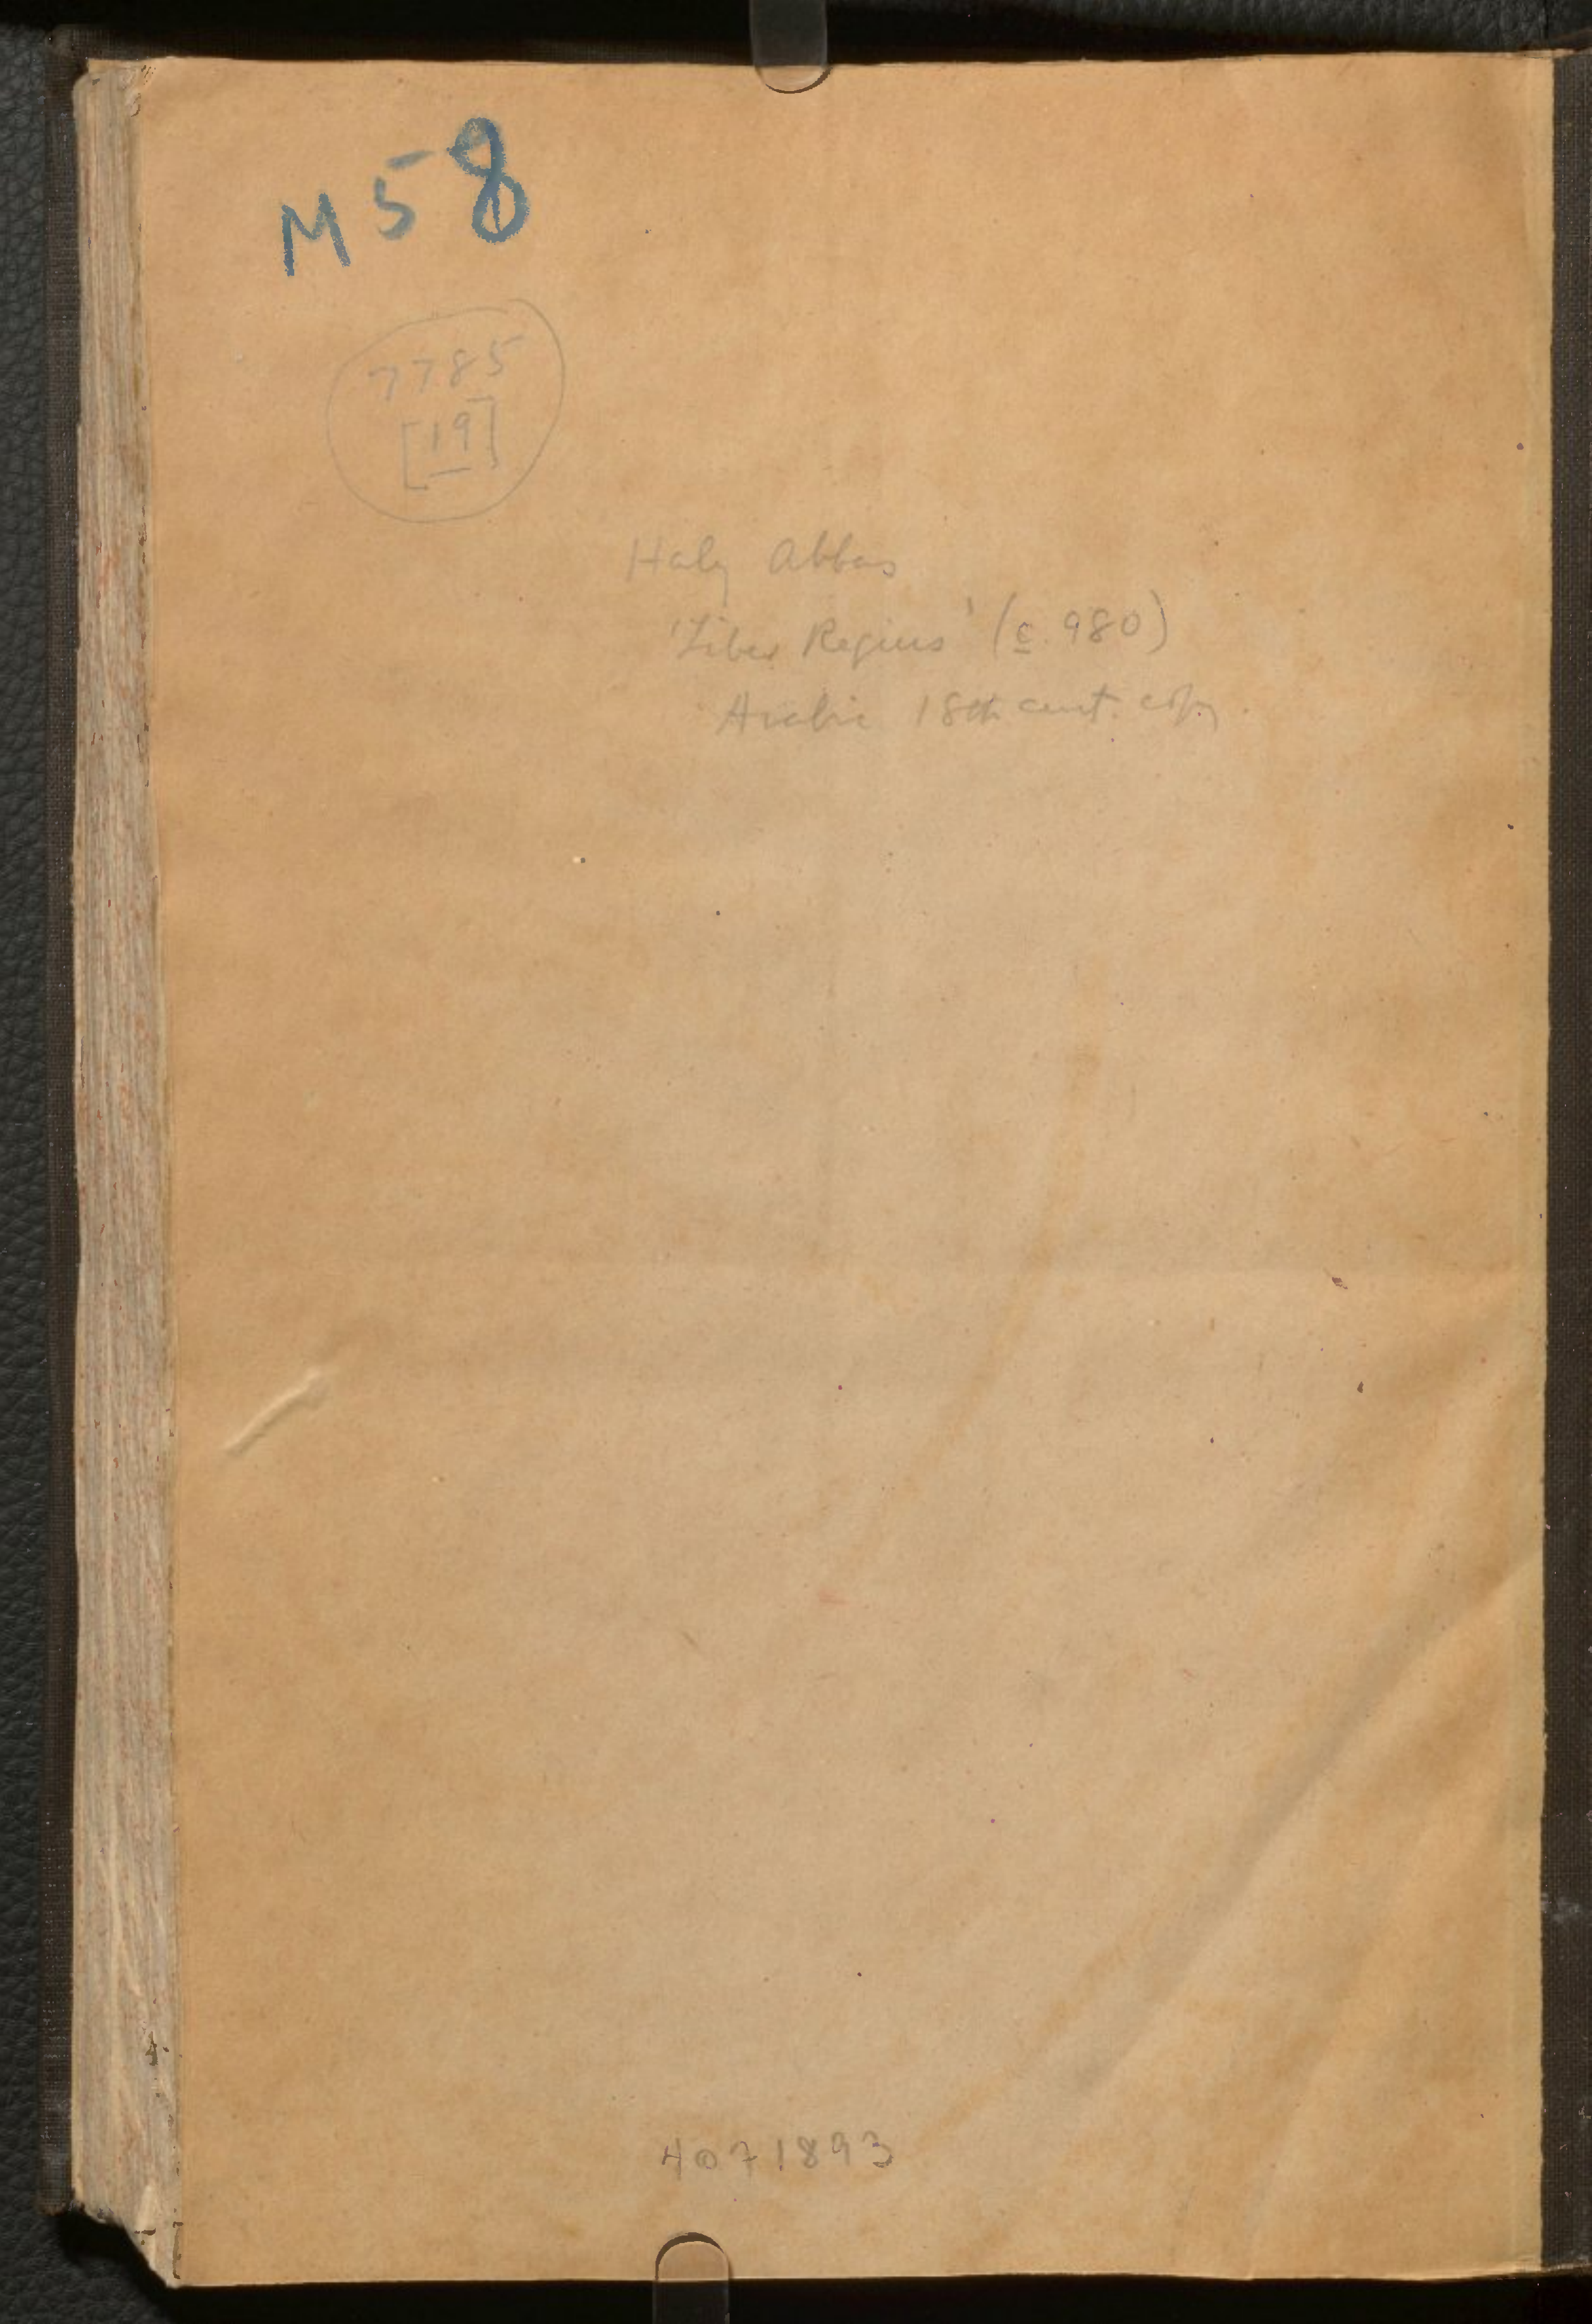 M58
7785
[19]
Haly Abbas
'Liber Regius' (c. 980)
Arabic 18th cent. copy.
4071893